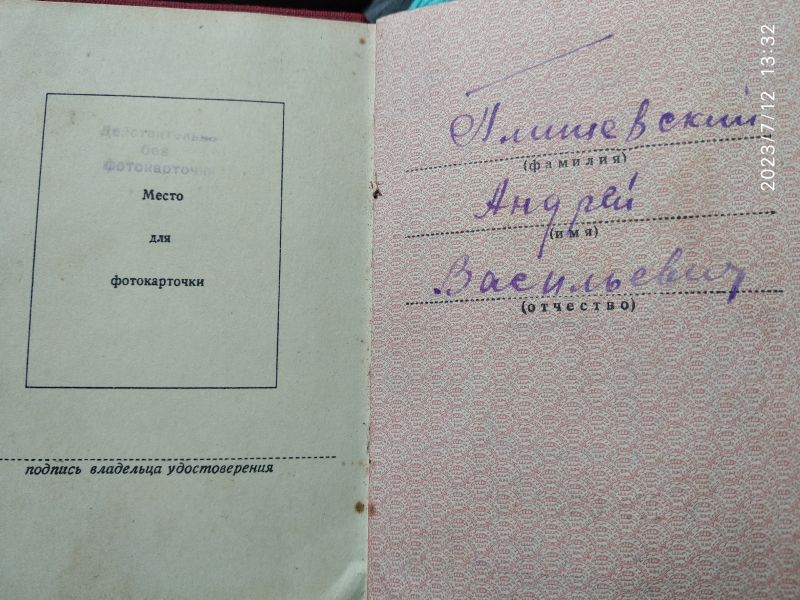 Действительно
без
фотокарточки
Место
для
фотокарточки
подпись владельца удостоверения
Плишевский
(фамилия)
Андрей
(имя)
Васильевич
(отчество)
2023/7/12 13:32